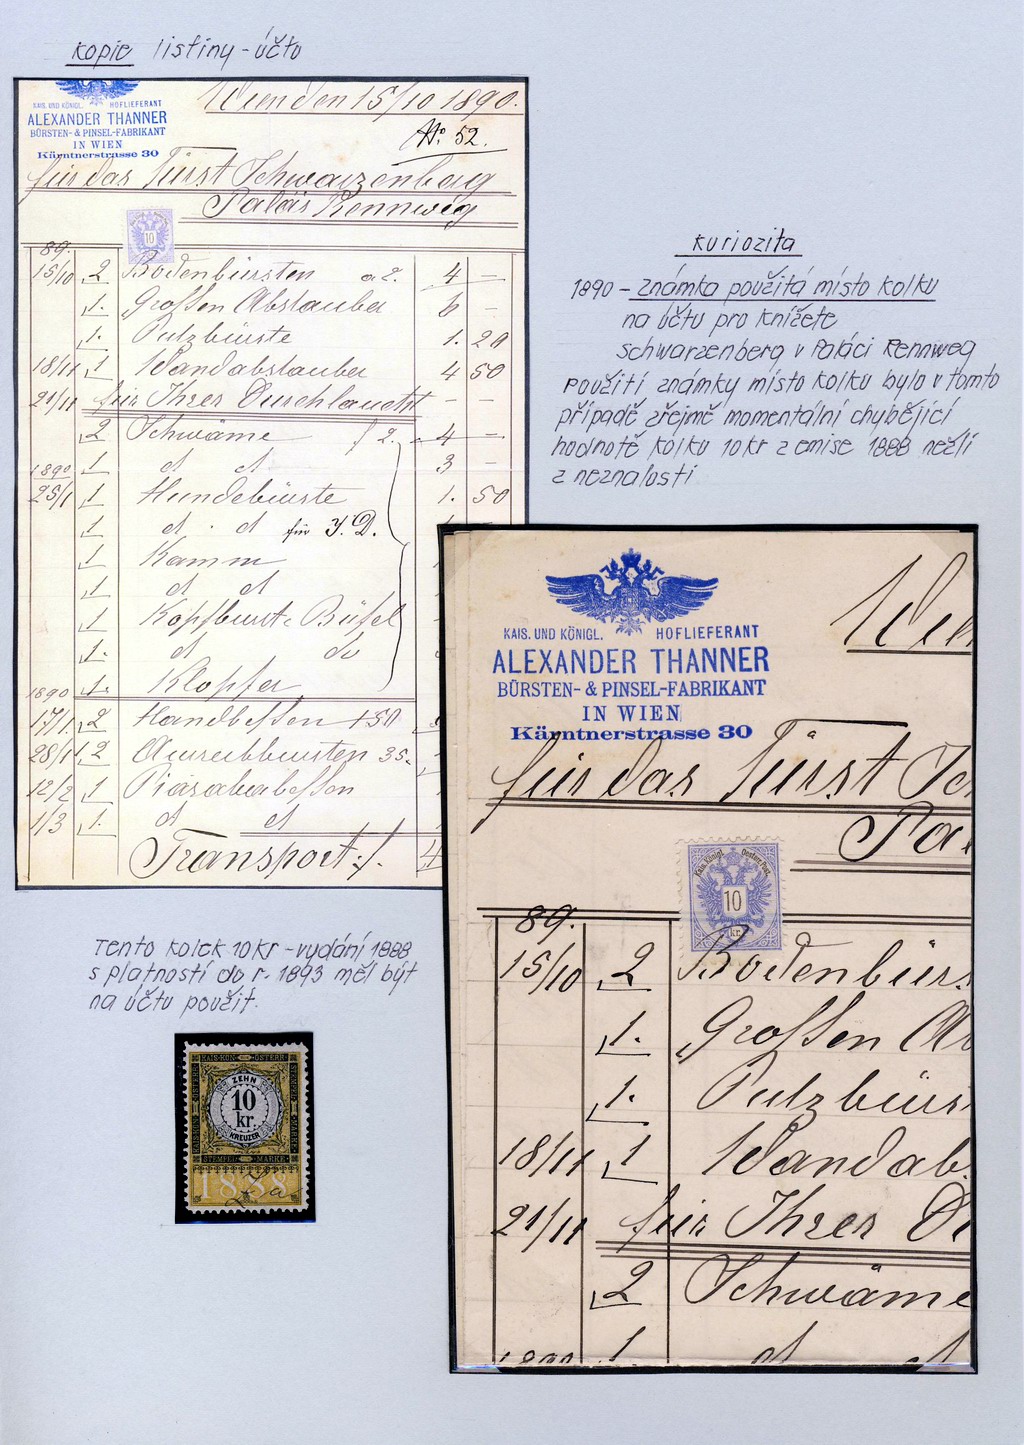 Kopie listiny - účtu
KAIS. UND KÖNIGL. HOFLIEFERANT
ALEXANDER THANNER
BÜRSTEN- & PINSEL-FABRIKANT
IN WIEN
Kärntnerstrasse 30
Wien den 15/10 1890.
No. 52.
für das Fürst Schwarzenberg
Palais Rennweg
10
89.
15/10 2 Bodenbürsten a 2. 4 —
1. Großen Abstauber 6 —
1. Putzbürste 1. 20
18/11 1 Wandabstauber 4 50
21/11 für Ihrer Durchlaucht — —
2 Schwäme f 2. 4 —
1890 1 d d 3 —
25/1 1 Hundebürste 1. 50
1 d d für I. D.
1 Kamm
1 d d
1 Kopfbürst. Büfel
1. d do
1890 1. Klopfer
17/1 2 Handbeßen 1 50
28/1 2 Ausreibbürsten 35.
12/2 1 Piasababeßen
1/3 1. d d
Transport :/. 4
kuriozita
1890 - známka použitá místo kolku
na účtu pro knížete
Schwarzenberg v Paláci Rennweg
Použití známky místo kolku bylo v tomto
případě zřejmě momentální chybějící
hodnotě kolku 10 kr z emise 1888 nežli
z neznalosti
KAIS. UND KÖNIGL. HOFLIEFERANT
ALEXANDER THANNER
BÜRSTEN- & PINSEL-FABRIKANT
IN WIEN
Kärntnerstrasse 30
Wien
für das Fürst Sc
Pa
Kais. Königl. Oesterr. Post.
10
kr.
89.
15/10 2 Bodenbürs
1. Großen Ab
1. Putzbürs
18/11 1 Wandab
21/11 für Ihrer D
2 Schwäme
1890 1 d d
Tento kolek 10 kr - vydání 1888
s platností do r. 1893 měl být
na účtu použit.
KAIS. KÖN. ÖSTERR.
STEMPEL MARKE
ZEHN
10
kr.
KREUZER
STEMPEL MARKE
1888